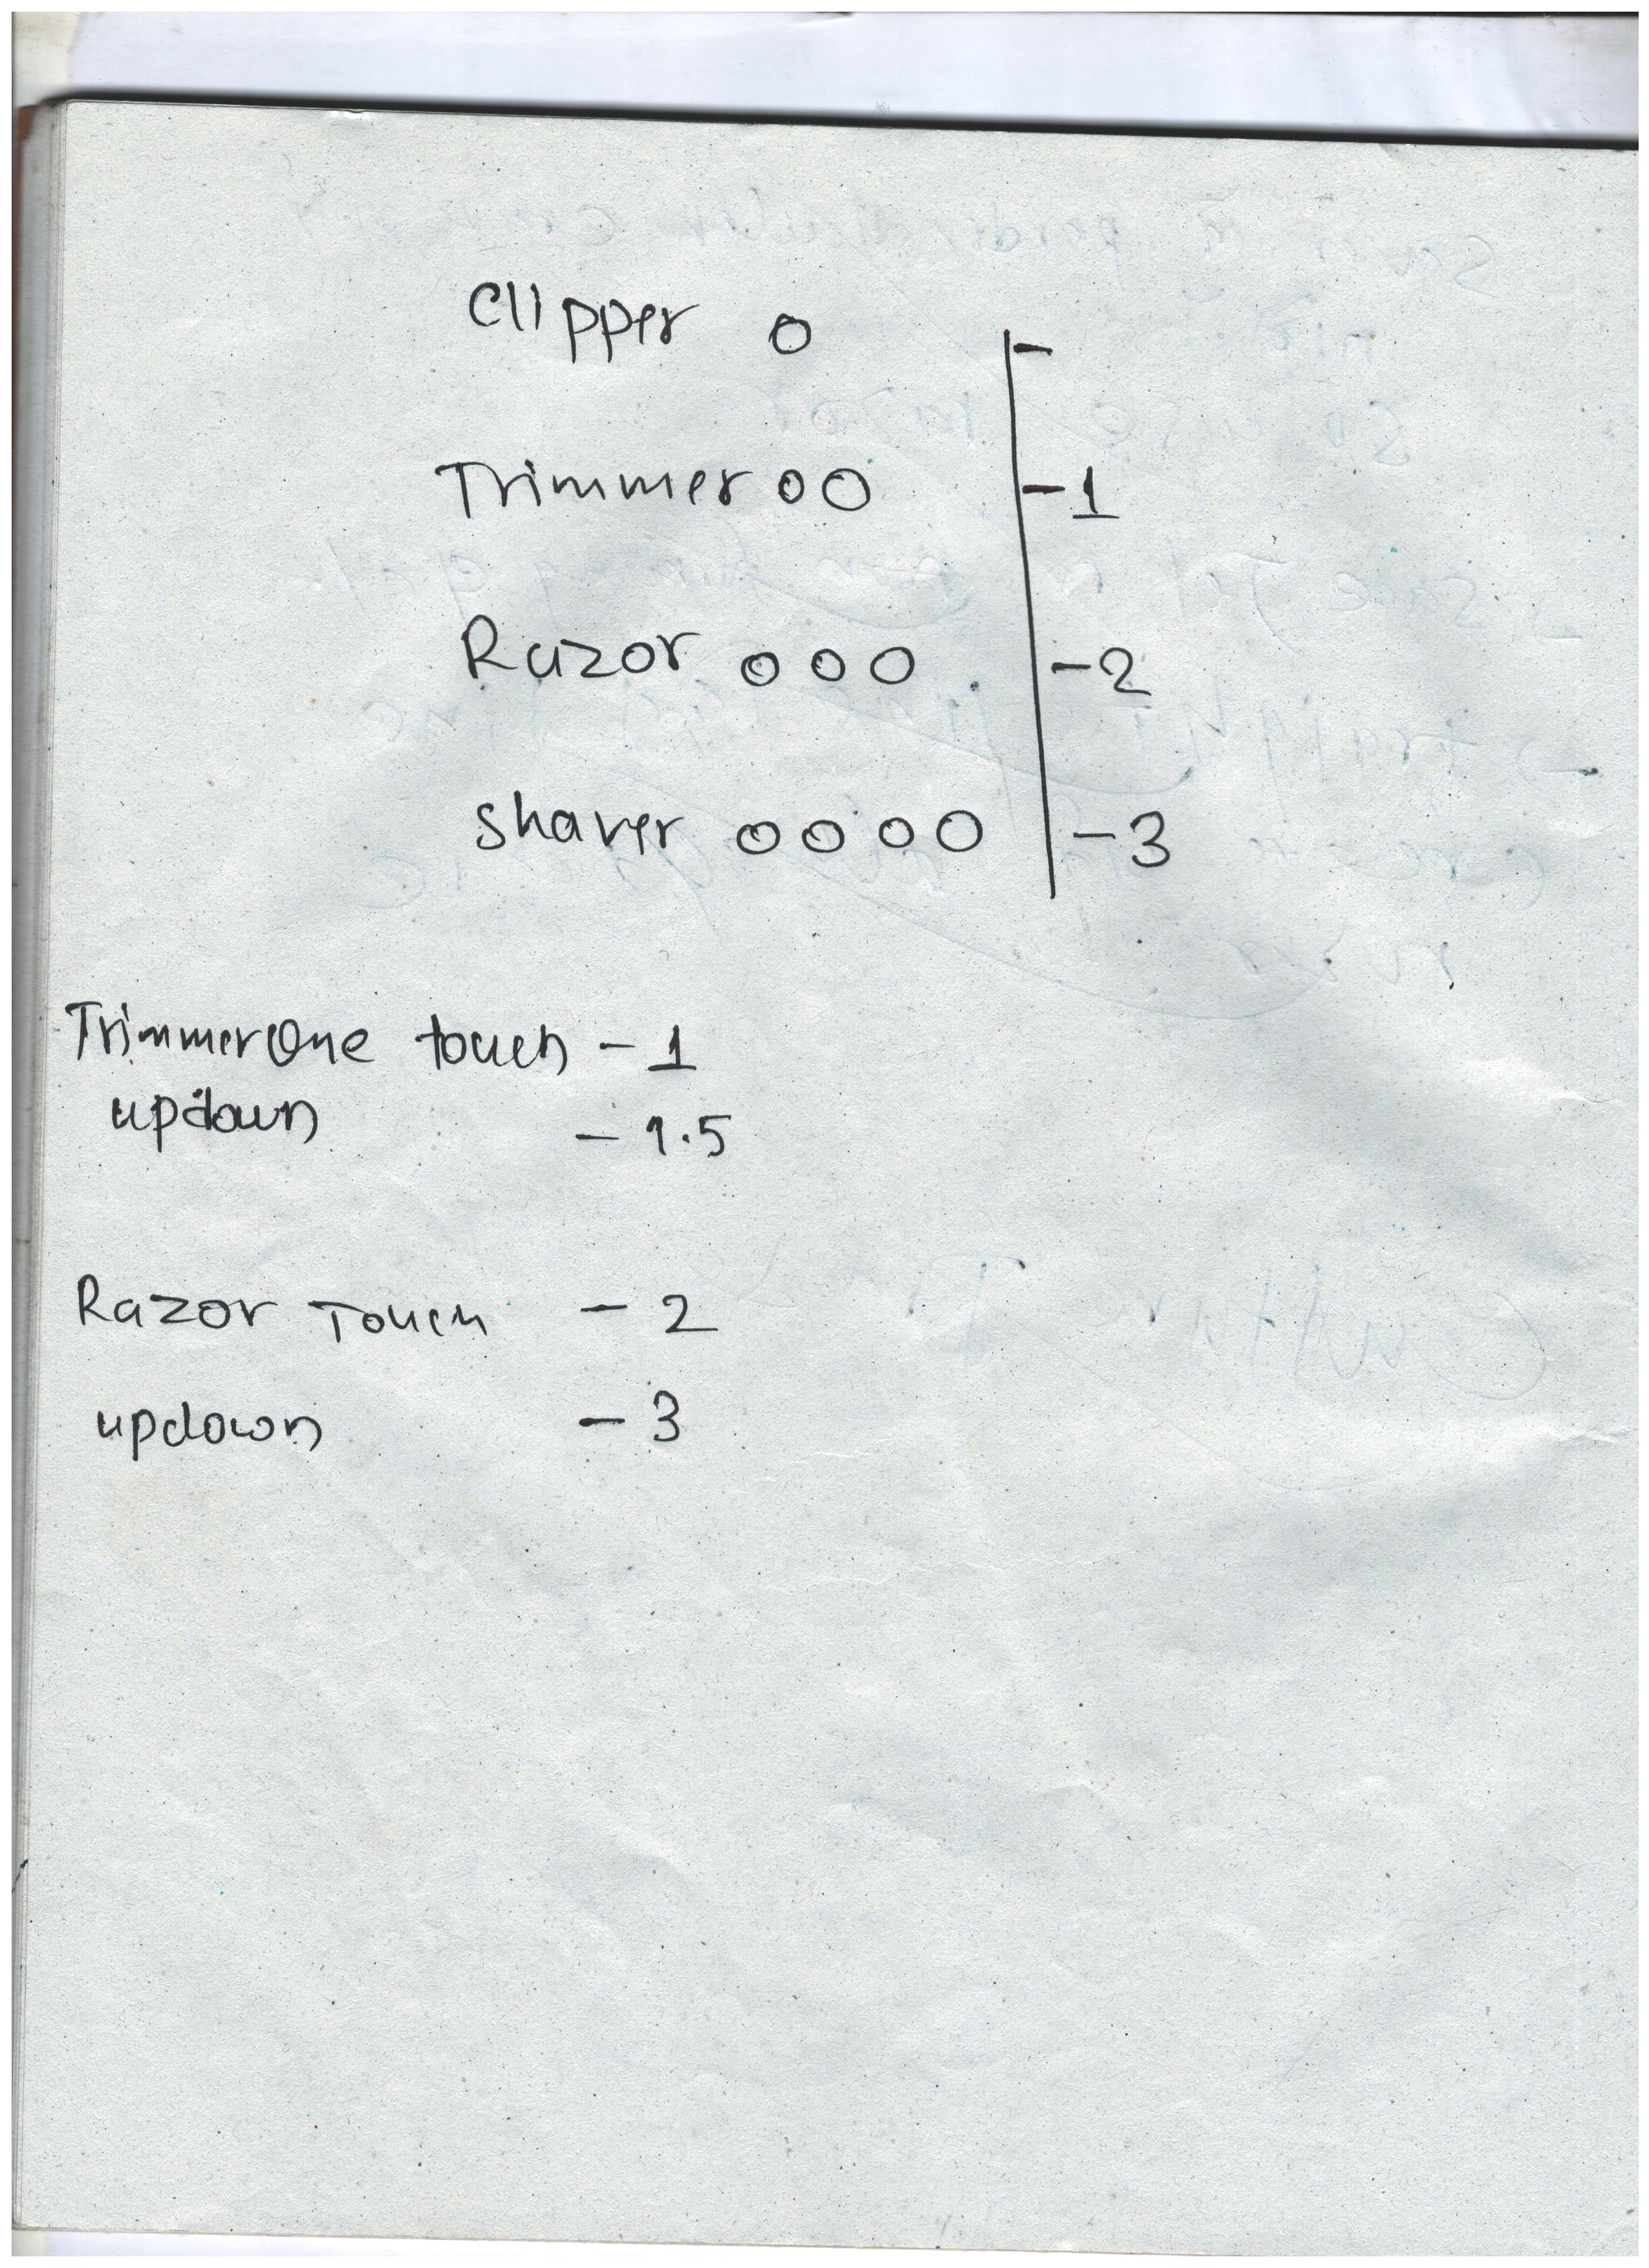 Clipper 0 -
Trimmer 00 - 1
Razor 000 - 2
shaver 0000 - 3
Trimmer One touch - 1
updown - 1.5
Razor Touch - 2
updown - 3